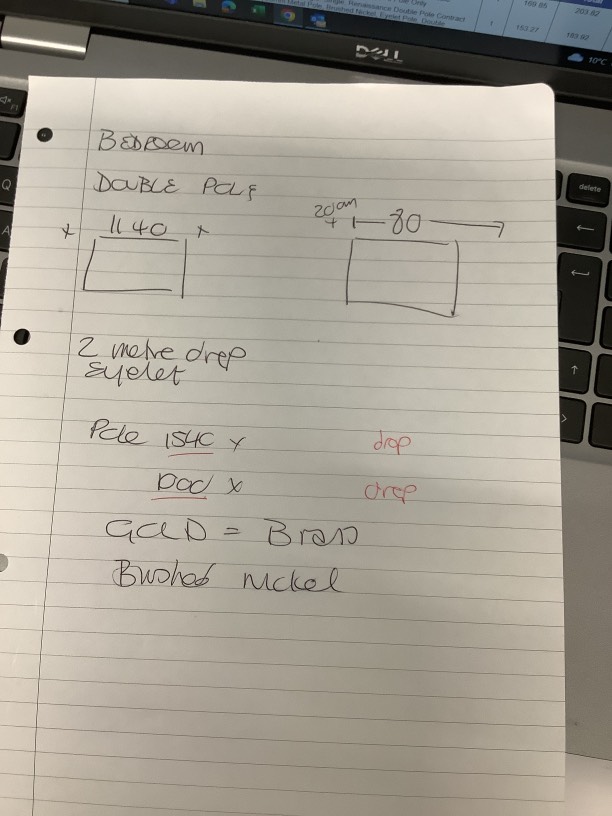 Single, Renaissance Double Pole Contract
Metal Pole, Brushed Nickel, Eyelet Pole, Double
1
169.85
203.82
153.27
183.92
10°C
DELL
delete
Q
A
BEDROOM
DOUBLE POLE
20cm
+ 80
x 1140 x
2 metre drop
Eyelet
Pole 1540 x drop
1200 x drop
GOLD = Brass
Brushed Nickel